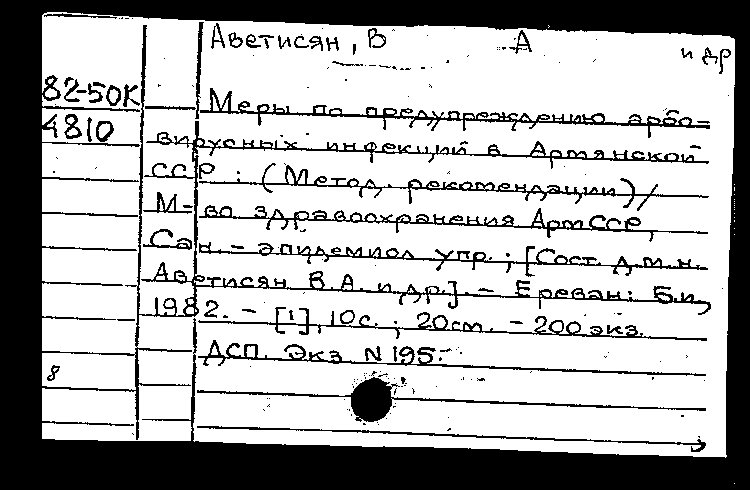 Аветисян, В А и др
82-50К
4810
Меры по предупреждению арбо=
вирусных инфекций в Армянской
ССР : (Метод. рекомендации) /
М-во здравоохранения АрмССР,
Сан. - эпидемиол упр. ; [Сост. д.м.н.
Аветисян В.А. и др.]. - Ереван: Б.и,
1982. - [1], 10с. ; 20см. - 200 экз.
ДСП. Экз N 195.-
8